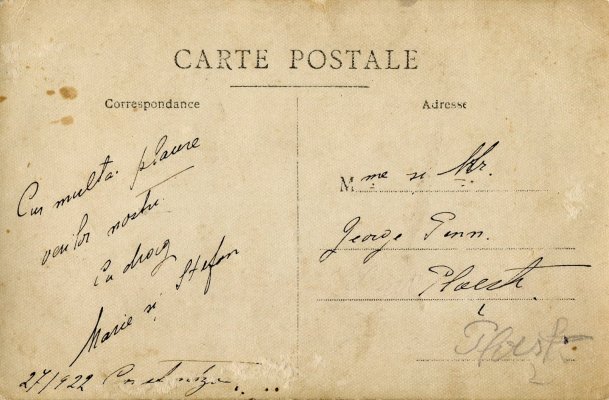 CARTE POSTALE
Correspondance
Adresse
Cu multa placere
nostri
Cu drag
Marie si Stefan
27/922
Mme si Mr.
George Penn.
Ploesti
Ploesti